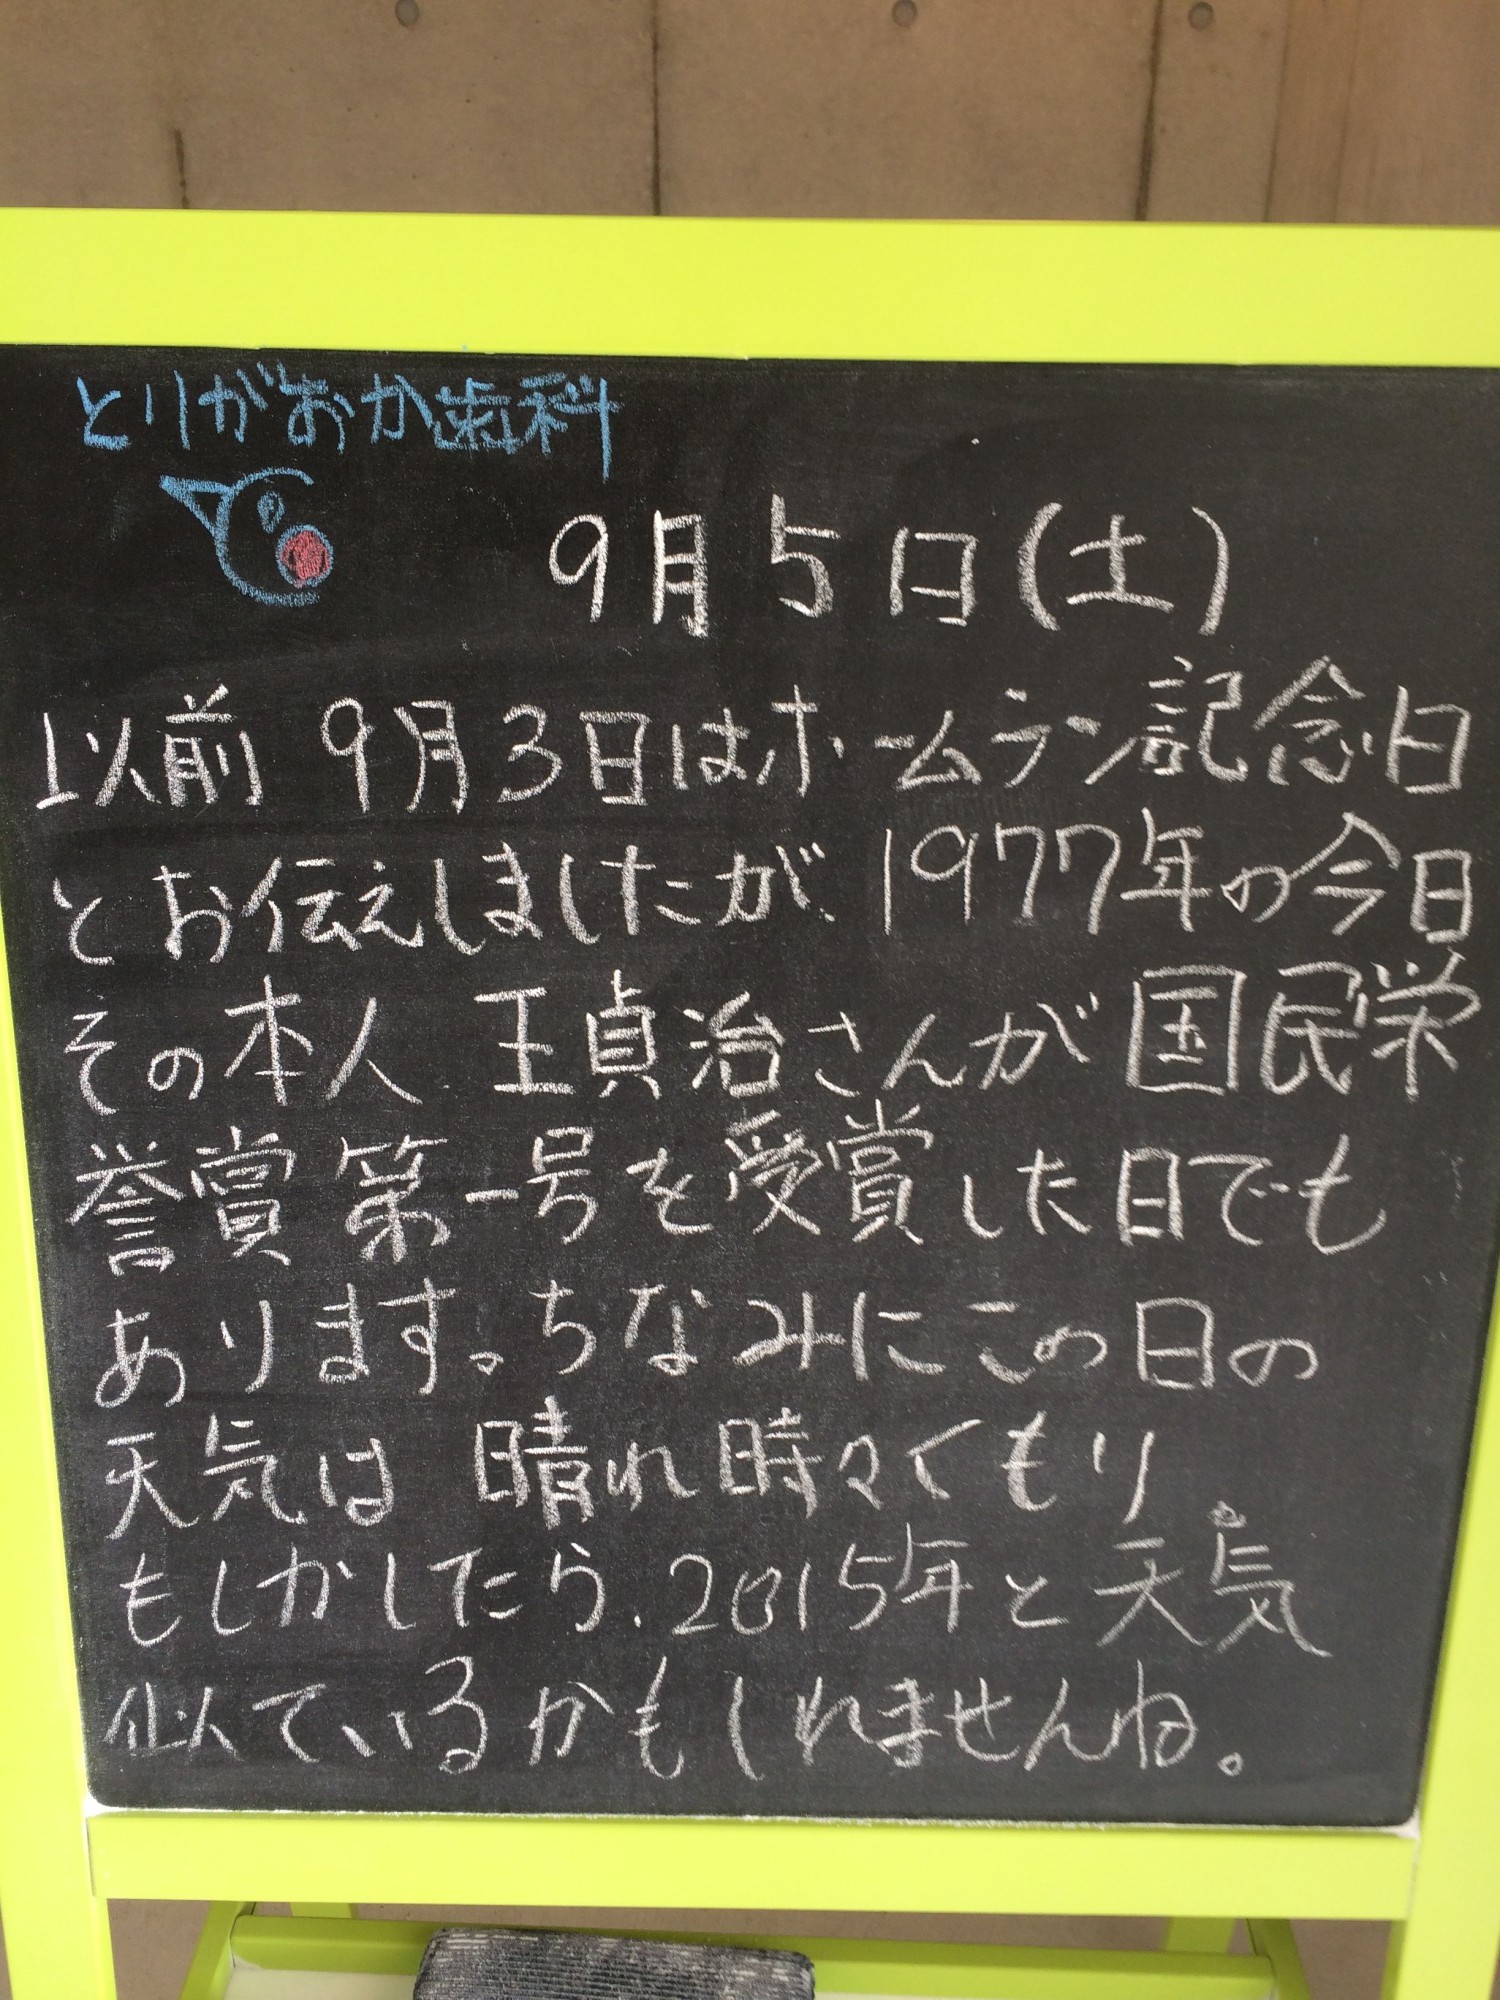 とりがおか歯科
9月5日(土)
以前 9月3日はホームラン記念日
とお伝えしましたが、1977年の今日
その本人 王貞治さんが国民栄
誉賞第一号を受賞した日でも
あります。ちなみにこの日の
天気は 晴れ時々くもり。
もしかしたら、2015年と天気
似ているかもしれませんね。